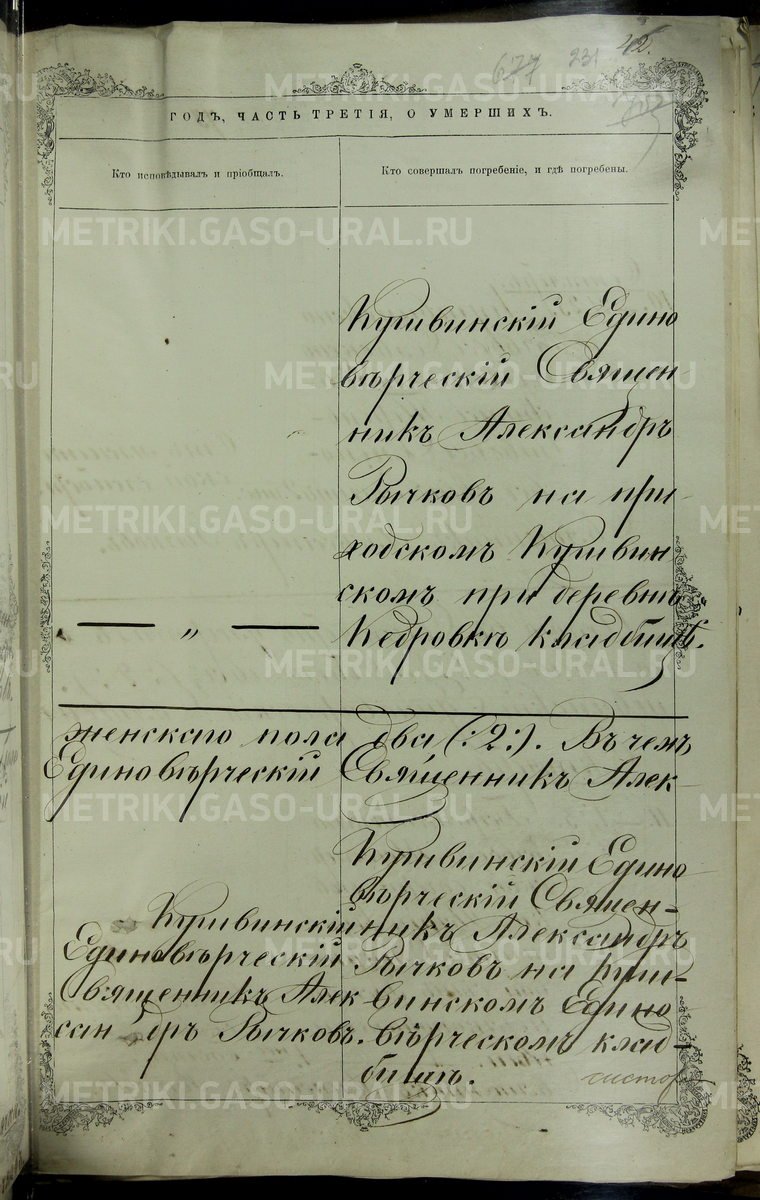 677 231 42.
ГОДЪ, ЧАСТЬ ТРЕТІЯ, О УМЕРШИХЪ.
Кто исповѣдывалъ и пріобщалъ.
Кто совершалъ погребеніе, и гдѣ погребены.
METRIKI.GASO-URAL.RU
Кушвинскій Едино
вѣрческій Священ
никъ Александръ
Рычковъ на при-
ходскомъ Кушвин
скомъ при деревнѣ
Кедровкѣ кладбищѣ.
— „ —
женскаго пола два (:2:). Въ чемъ
Единовѣрческій Священникъ Алек-
Кушвинскій
Единовѣрческій
Священникъ Алек
сандръ Рычковъ.
Кушвинскій Едино
вѣрческій Священ-
никъ Александръ
Рычковъ на Куш-
винскомъ Едино
вѣрческомъ клад-
бищѣ.